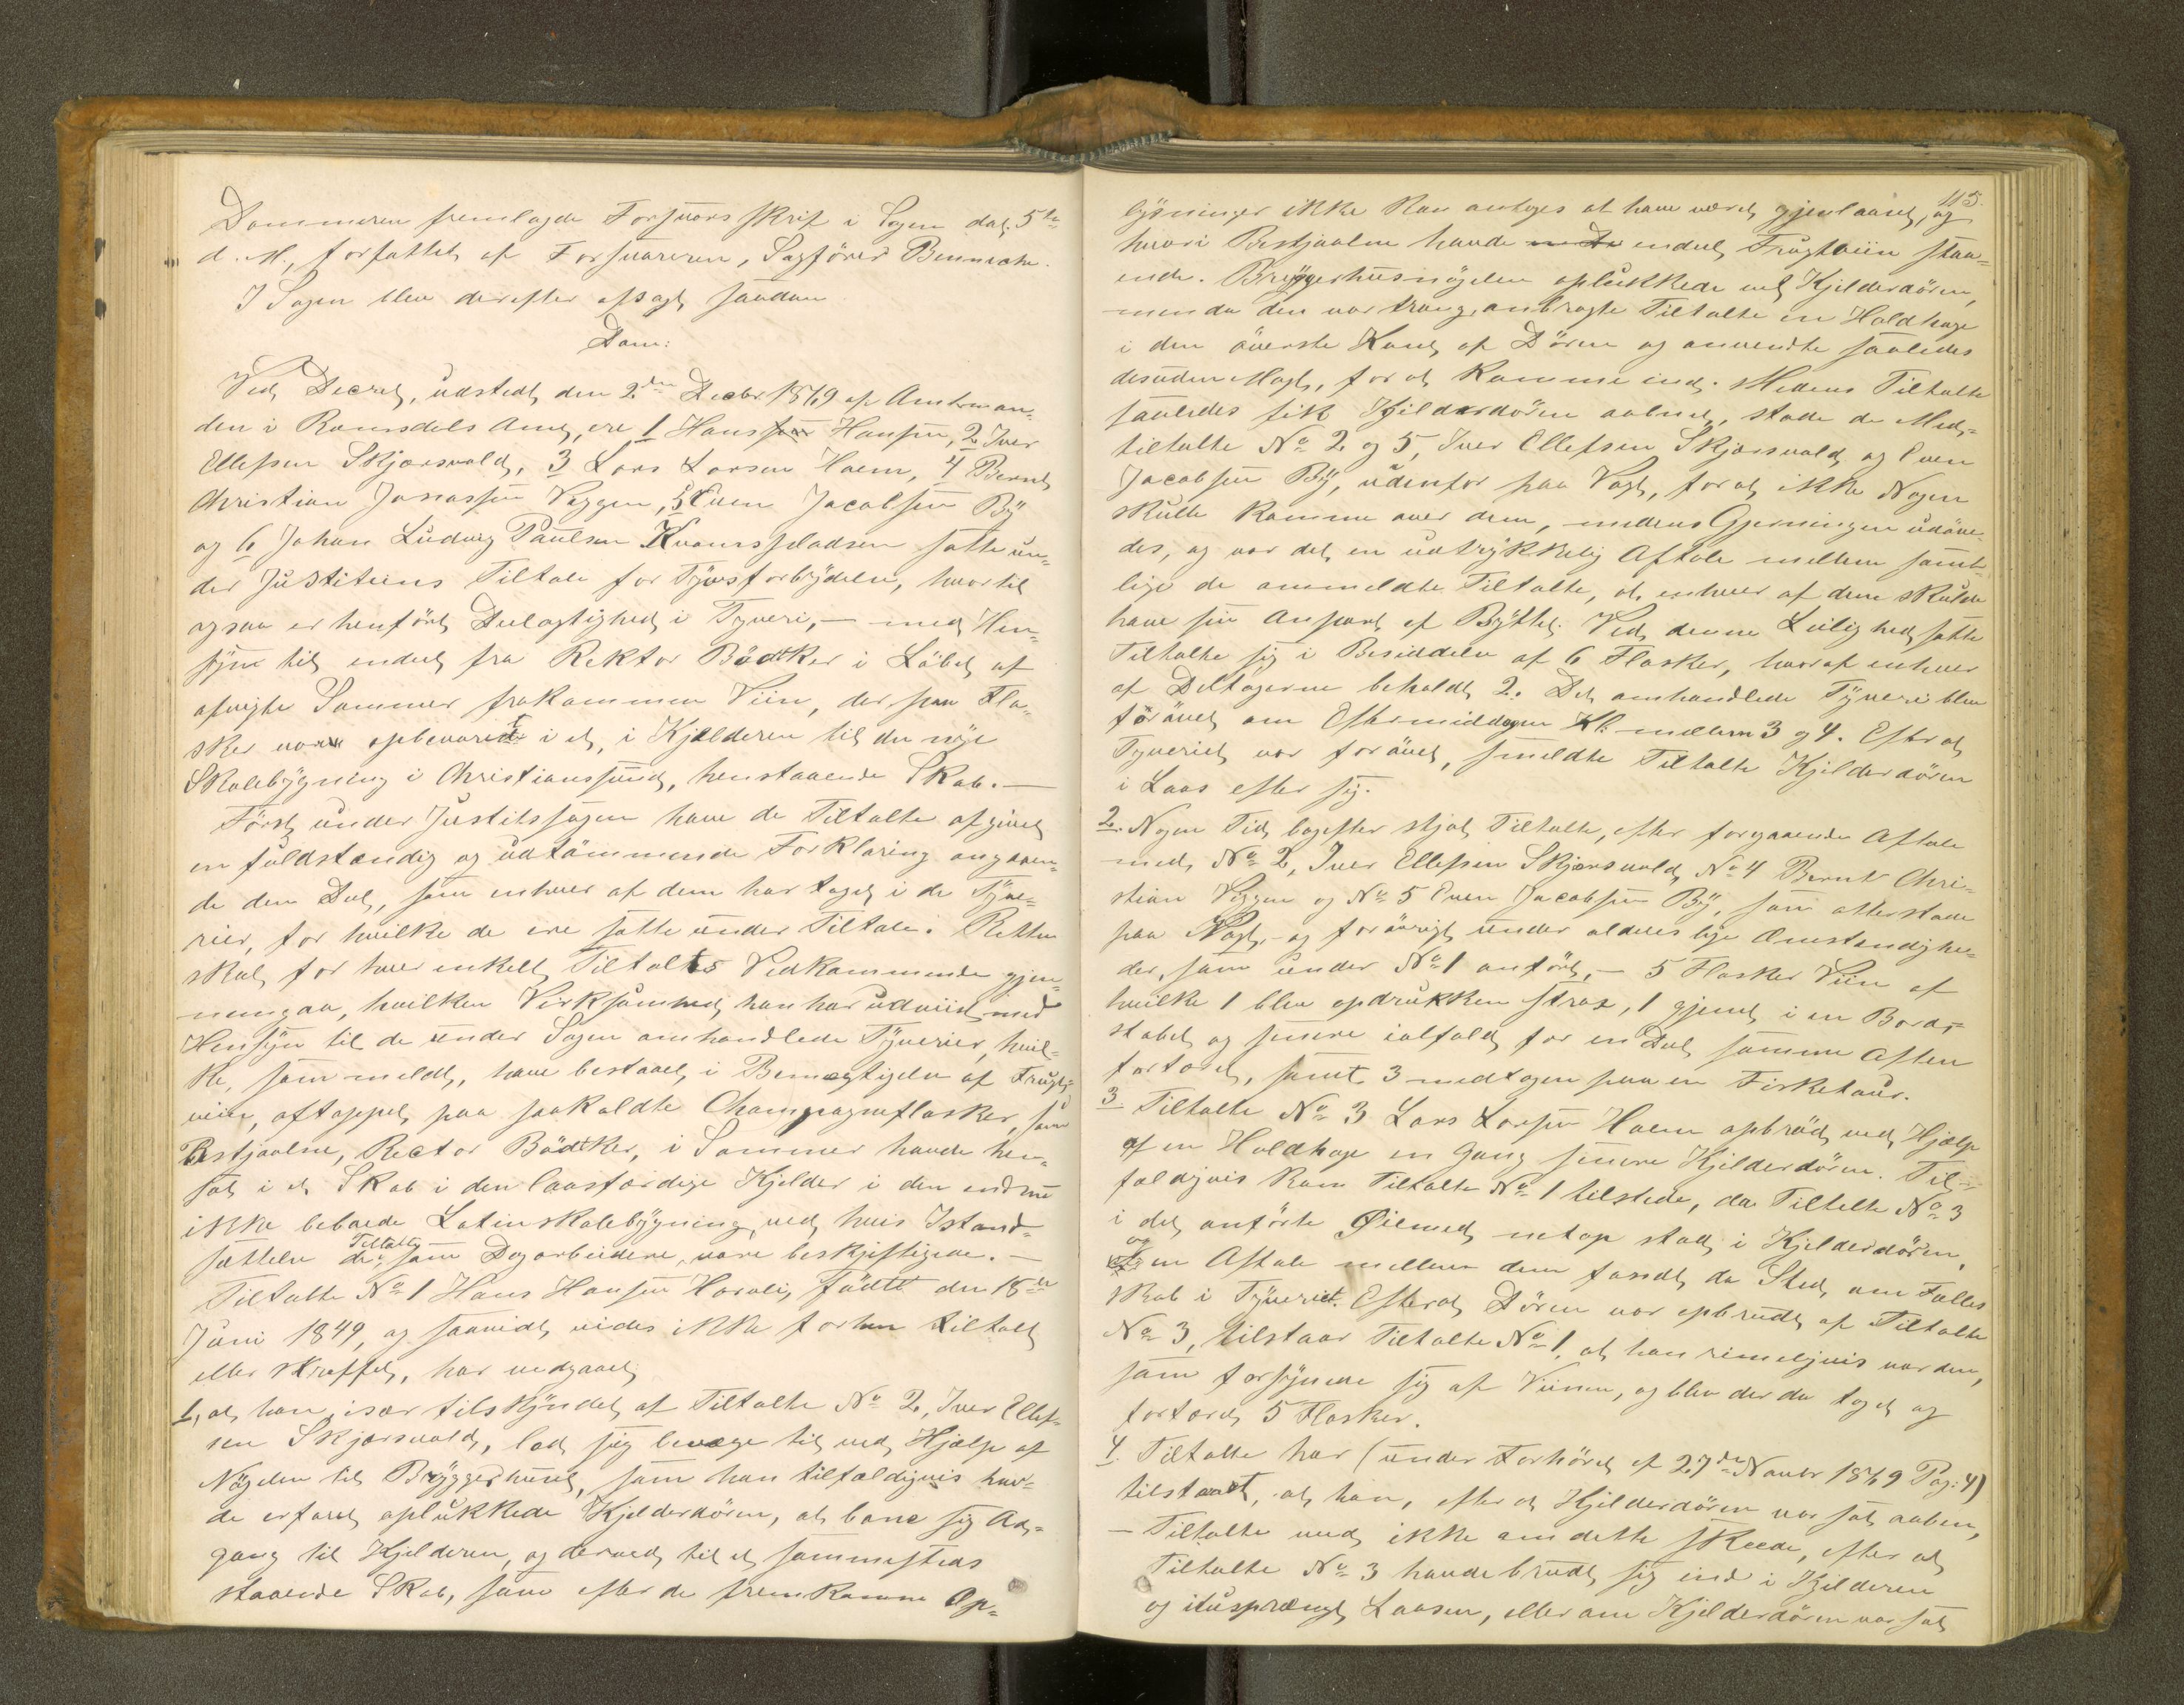 Dommeren fremlagde Forsvarsskrift i Sagen dat. 5te
d. M., forfattet af Forsvareren, Sagfører Benneche.
I Sagen blev derefter afsagt saadan
Dom:
Ved Decret, udstedt den 2den Decbr 1869 af Amtman-
den i Romsdals Amt, ere 1 Hans Hansen, 2 Iver
Ellefsen Skjærsvold, 3 Lars Larsen Holm, 4 Bernt
Christian Jonassen Veggen, 5 Even Jacobsen By
og 6 Johan Ludvig Paulsen Kvernspladsen satte un-
der Justitiens Tiltale for Tyvsforbrydelse, hvortil
ogsaa er henført Deelagtighed i Tyveri, – med Hen-
syn til endeel fra Rektor Bødtker i Løbet af
afvigte Sommer frakommen Viin, der paa Fla-
sker var opbevaret i et, i Kjelderen til den nye
Skolebygning i Christianssund, henstaaende Skab. –
Først under Justitssagen have de Tiltalte afgivet
en fuldstændig og udtømmende Forklaring angaaen-
de den Deel, som enhver af dem har taget i de Tyve-
rier, for hvilke de ere satte under Tiltale. Retten
skal for hver enkelt Tiltaltes Vedkommende gjen-
nemgaa, hvilken Virksomhed han har udviist med
Hensyn til de under Sagen omhandlede Tyverier, hvil-
ke, som meldt, have bestaaet i Bemægtigelse af Frugt-
viin, aftappet paa saakaldte Champagneflasker, som
Bestjaalne, Rector Bødtker, i Sommer havde hen-
sat i et Skab i den laasfærdige Kjelder i den endnu
ikke beboede Latinskolebygning, ved hvis Istand-
sættelse de Tiltalte, som Dagarbeidere, vare beskjeftigede. –
Tiltalte No 1 Hans Hansen Havoli, født den 18de
Juni 1849, og saavidt vides ikke forhen tiltalt
eller straffet, har vedgaaet,
1, at han, især tilskyndet af Tiltalte No 2, Iver Ellef-
sen Skjærsvold, lod sig bevæge til ved Hjælp af
Nøglen til Bryggerhuset, som han tilfældigvis hav-
de erfaret oplukkede Kjelderdøren, at bane sig Ad-
gang til Kjelderen, og derved til et sammesteds
staaende Skab, som efter de fremkomne Op-
115.
lysninger ikke kan antages at have været gjenlaaset, og
hvori Bestjaalne havde endeel Frugtviin staa-
ende. Bryggerhusnøglen oplukkede vel Kjelderdøren,
men da den var trang, anbragte Tiltalte en Holdhage
i den øverste Kant af Døren og anvendte saaledes
desuden Magt, for at komme ind. Medens Tiltalte
saaledes fik Kjelderdøren aabnet, stode de Med-
tiltalte No 2 og 5, Iver Ellefsen Skjærsvold og Even
Jacobsen By, udenfor paa Vagt, forat ikke Nogen
skulde komme over dem, medens Gjerningen udøve-
des, og var det en udtrykkelig Aftale mellem samt-
lige de anmeldte Tiltalte, at enhver af dem skulde
have sin Anpart af Byttet. Ved denne Leilighed satte
Tiltalte sig i Besiddelse af 6 Flasker, hvoraf enhver
af Deltagerne beholdt 2. Det omhandlede Tyveri blev
forøvet om Eftermiddagen Kl. mellem 3 og 4. Efterat
Tyveriet var forøvet, smeldte Tiltalte Kjelderdøren
i Laas efter sig.
2. Nogen Tid bagefter stjal Tiltalte, efter forgaaende Aftale
med No 2, Iver Ellefsen Skjærsvold, No 4 Bernt Chri-
stian Veggen og No 5 Even Jacobsen By, som atter stode
paa Vagt, – og forøvrigt under aldeles lige Omstændighe-
der, som under No 1 anført, – 5 Flasker Viin af
hvilke 1 blev opdrukken strax, 1 gjemt i en Bord-
stabel og senere ialfald for en Deel samme Aften
fortæret, samt 3 medtagen paa en Fisketour.
3. Tiltalte No 3 Lars Larsen Holm opbrød ved Hjælp
af en Holdhage en Gang senere Kjelderdøren. Til-
fældigvis kom Tiltalte No 1 tilstede, da Tiltalte No 3
i det anførte Øiemed netop stod i Kjelderdøren,
og en Aftale mellem dem fandt da Sted om Fælles-
skab i Tyveriet. Efterat Døren var opbrudt af Tiltalte
No 3, tilstaar Tiltalte No 1, at han rimeligvis var den,
som forsynede sig af Vinen, og blev der da taget og
fortæret 5 Flasker.
4. Tiltalte har (under Forhøret af 27de Novbr 1869 Pag: 4)
tilstaaet, at han, efterat Kjelderdøren var sat aaben,
– Tiltalte veed ikke om dette skeede, efterat
Tiltalte No 3 havde brudt sig ind i Kjelderen
og itusprængt Laasen, eller om Kjelderdøren var sat